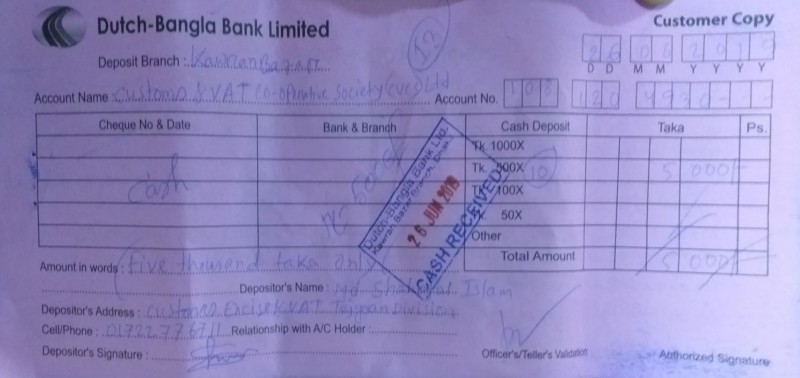 Dutch-Bangla Bank Limited
Customer Copy
12
Deposit Branch : Kawran Bazar
26 06 2019
D D M M Y Y Y Y
Account Name : Customs & VAT Co-operative Society (cvcs) Ltd Account No. 108 120 4930
Cheque No & Date Bank & Branch Cash Deposit Taka Ps.
Tk. 1000X
Tk. 500X 10 5000/-
Cash
Tk. 100X
Tk. 50X
Other
Total Amount 5000/-
Dutch-Bangla Bank Ltd.
Kawran Bazar Branch, Dhaka
26 JUN 2019
CASH RECEIVED
Amount in words : Five thousand taka only
Depositor's Name : Md Islam
Depositor's Address : Customs Excise & VAT Tejgaon Division
Cell/Phone : 01722776711 Relationship with A/C Holder :
Depositor's Signature :
Officer's/Teller's Validation
Authorized Signature